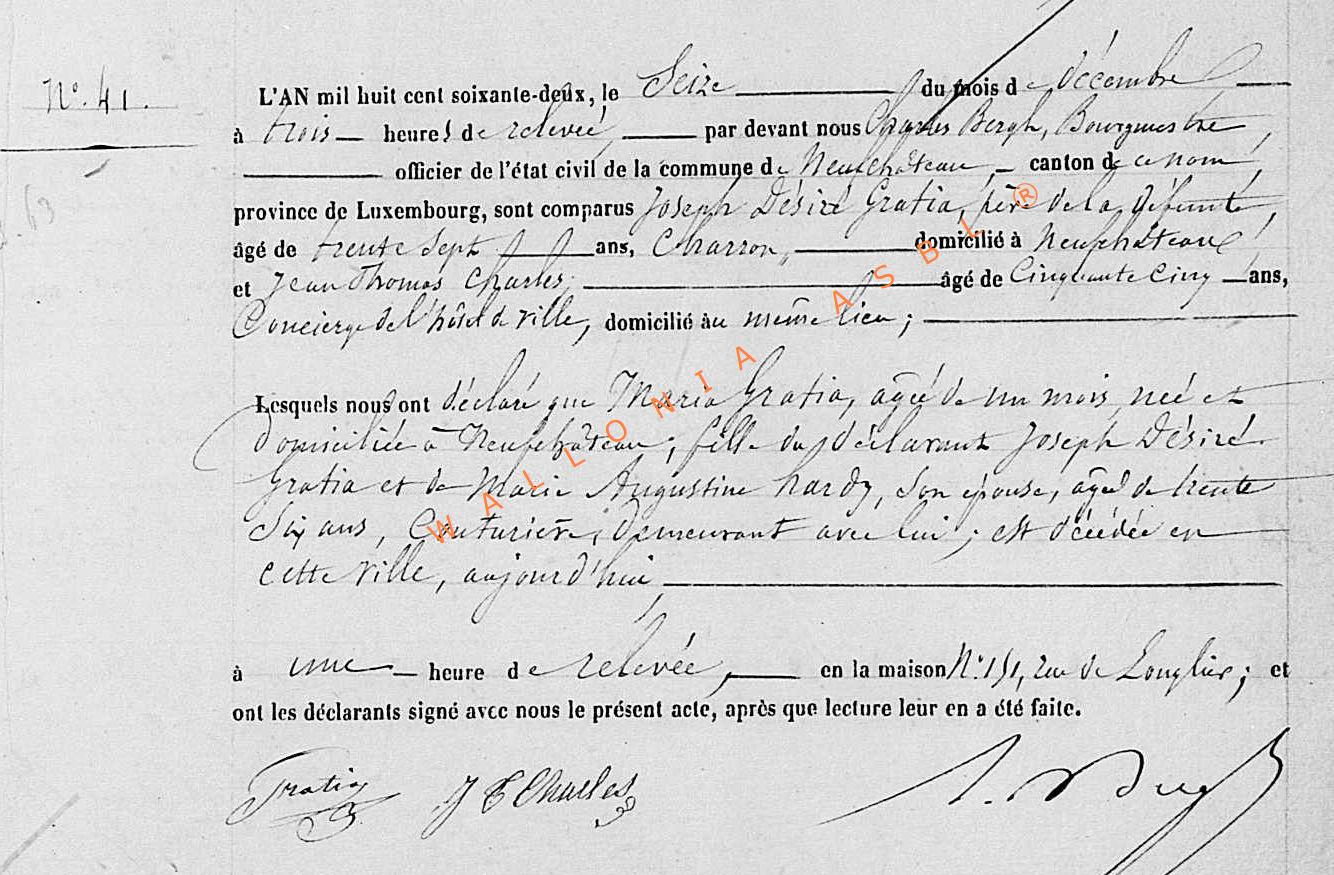 N.º 41.
L'AN mil huit cent soixante-deux, le Seize du mois de décembre
à trois heures de relevée, par devant nous Charles Bergh, Bourgmestre,
officier de l'état civil de la commune de Neufchâteau, canton de ce nom,
province de Luxembourg, sont comparus Joseph Désiré Gratia, père de la défunte,
âgé de trente sept ans, Charron, domicilié à Neufchâteau
et Jean Thomas Charles, âgé de Cinquante Cinq ans,
Concierge de l'hôtel de ville, domicilié au même lieu;
Lesquels nous ont déclaré que Maria Gratia, agée de un mois, née et
domiciliée à Neufchâteau, fille du déclarant Joseph Désiré
Gratia et de Marie Augustine hardy, son épouse, agée de trente
Six ans, Couturière, demeurant avec lui; est décédée en
cette ville, aujourd'hui
à une heure de relevée, en la maison N.º 151, rue de Longlier; et
ont les déclarants signé avec nous le présent acte, après que lecture leur en a été faite.
Gratia J T Charles
63
WALLONIA ASBL ®